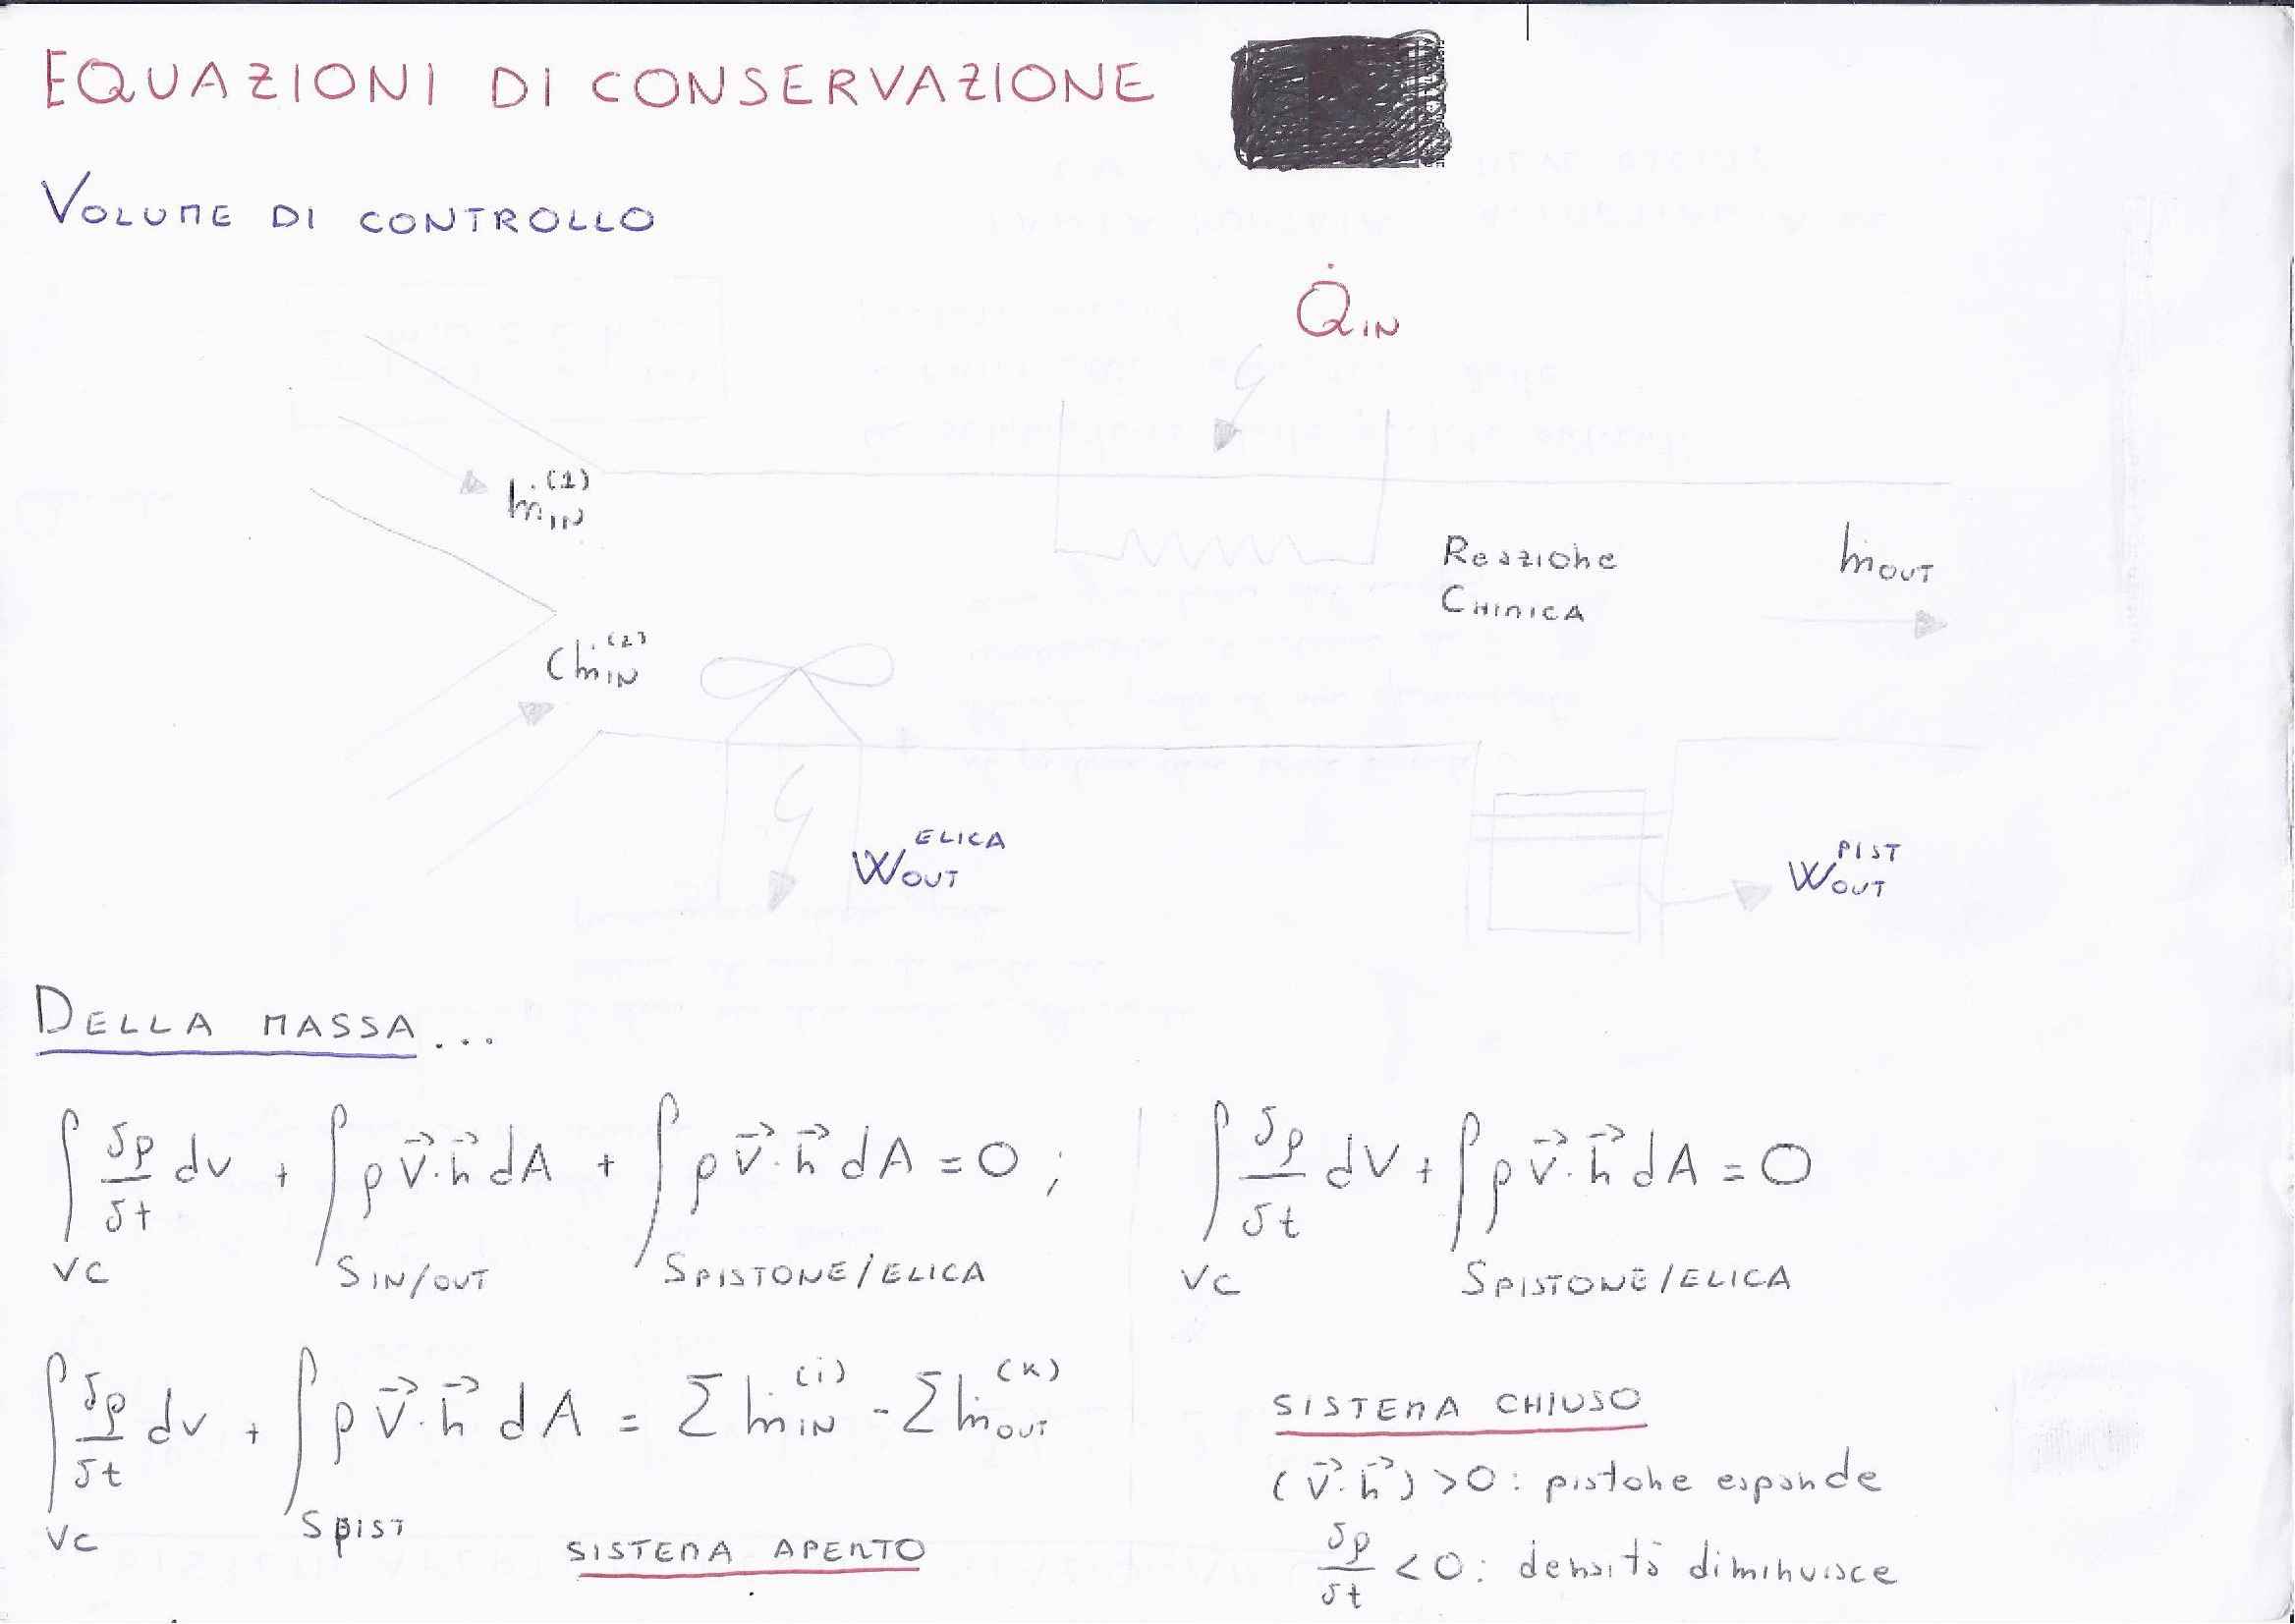 EQUAZIONI DI CONSERVAZIONE
VOLUME DI CONTROLLO
Q̇IN
ṁIN(1)
Reazione
CHIMICA
ṁOUT
ṁIN(2)
WOUT ELICA
WOUT PIST
DELLA MASSA...
∫VC δρ/δt dv + ∫SIN/OUT ρ v⃗·n⃗ dA + ∫SPISTONE/ELICA ρ v⃗·n⃗ dA = 0 ;
∫VC δρ/δt dV + ∫SPISTONE/ELICA ρ v⃗·n⃗ dA = 0
∫VC δρ/δt dv + ∫SPIST ρ v⃗·n⃗ dA = Σ ṁIN(i) - Σ ṁOUT(k)
SISTEMA APERTO
SISTEMA CHIUSO
(v⃗·n⃗) >0: pistone espande
δρ/δt < 0: densità diminuisce